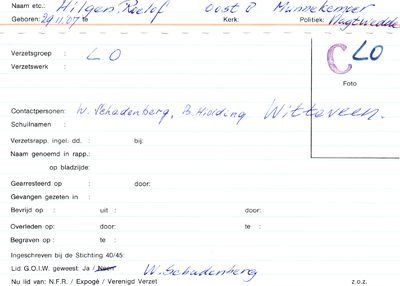 Naam etc.: Hilgen, Roelof Oost 0 Munnekemoer
Geboren: 29.11.'07 te Kerk: Politiek: Vlagtwedde
Verzetsgroep : LO
C LO
Verzetswerk :
Foto
Contactpersonen: W. Schadenberg, B. Hidding. Witteveen.
Schuilnamen :
Verzetsrapp. ingel. dd. : bij:
Naam genoemd in rapp.:
op bladzijde:
Gearresteerd op : door:
Gevangen gezeten in :
Bevrijd op : uit : door:
Overleden op : door: te :
Begraven op : te :
Ingeschreven bij de Stichting 40/45:
Lid G.O.I.W. geweest: Ja / Neen W. Schadenberg
Nu lid van: N.F.R. / Expogé / Verenigd Verzet z.o.z.